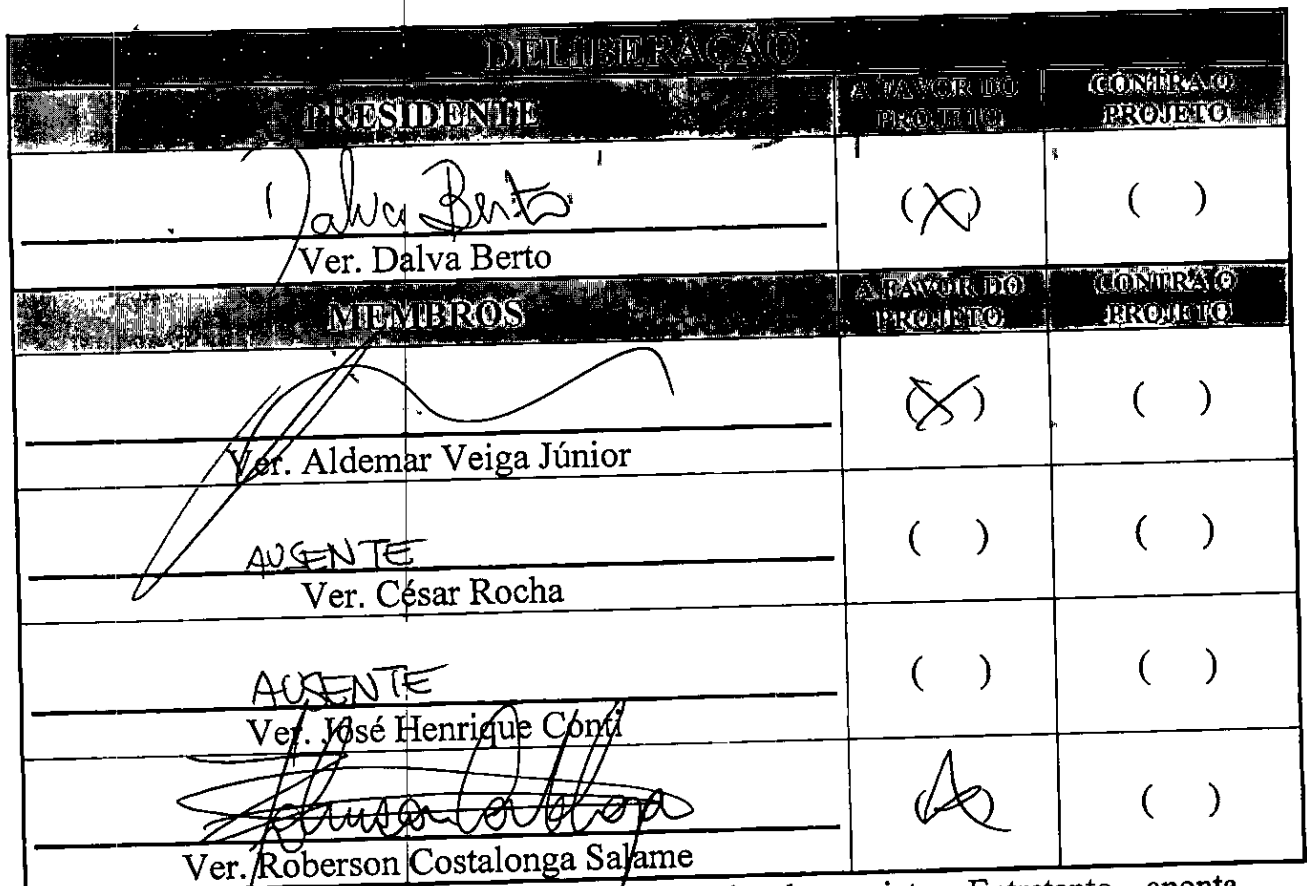 DELIBERAÇÃO
PRESIDENTE
A FAVOR DO PROJETO
CONTRA O PROJETO
Dalva Berto
(X)
( )
Ver. Dalva Berto
MEMBROS
A FAVOR DO PROJETO
CONTRA O PROJETO
(X)
( )
Ver. Aldemar Veiga Júnior
AUSENTE
( )
( )
Ver. César Rocha
AUSENTE
( )
( )
Ver. José Henrique Conti
(X)
( )
Ver. Roberson Costalonga Salame
projeto. Entretanto, aponta